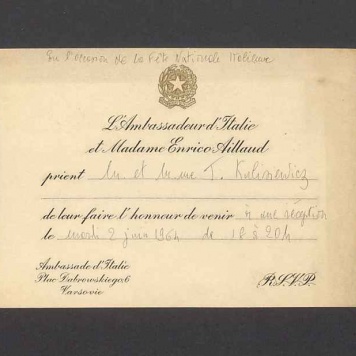 En l'occasion de la Fête Nationale Italienne
L'Ambassadeur d'Italie
et Madame Enrico Aillaud
prient M et Mme T. Kulisiewicz
de leur faire l'honneur de venir à une réception
le mardi 2 juin 1964 de 18 à 20h.
Ambassade d'Italie
Plac Dabrowskiego, 6
Varsovie
R.S.V.P.